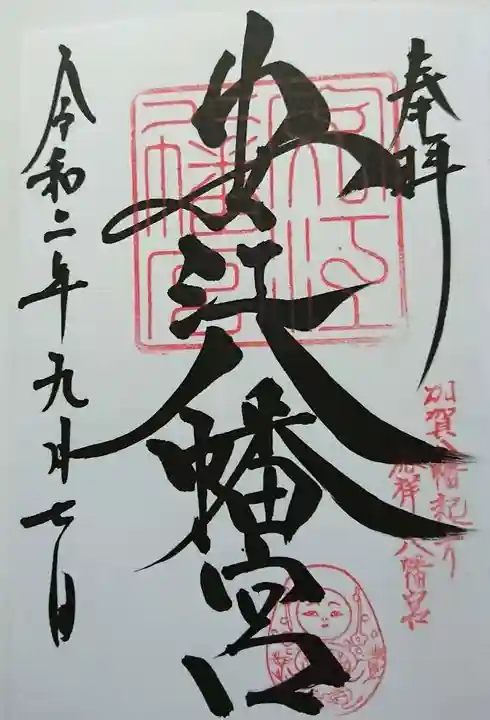 奉拝
加賀八幡起上り
安江八幡宮
安江
八幡宮
令和二年九月七日